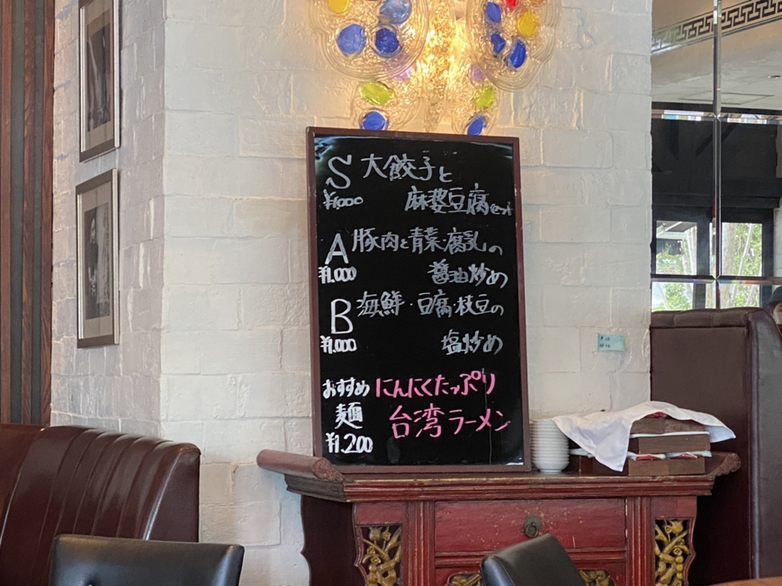 S 大餃子と
¥1,000 麻婆豆腐セット
A 豚肉と青菜・腐乳の
¥1,000 醤油炒め
B 海鮮・豆腐・枝豆の
¥1,000 塩炒め
おすすめ にんにくたっぷり
麺 台湾ラーメン
¥1,200